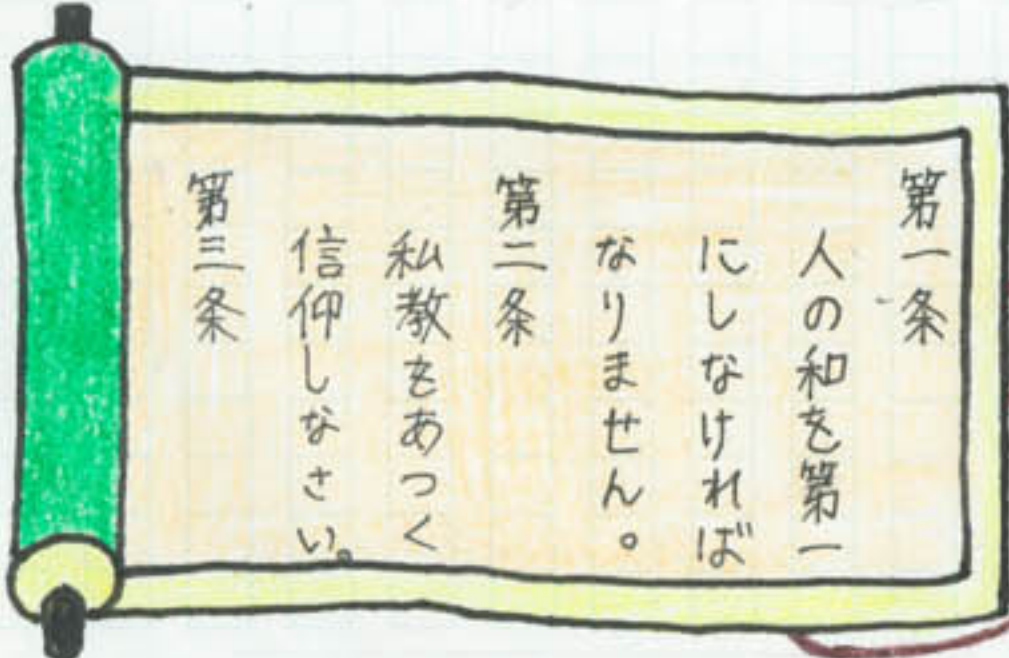 第一条
人の和を第一
にしなければ
なりません。
第二条
私教をあつく
信仰しなさい。
第三条